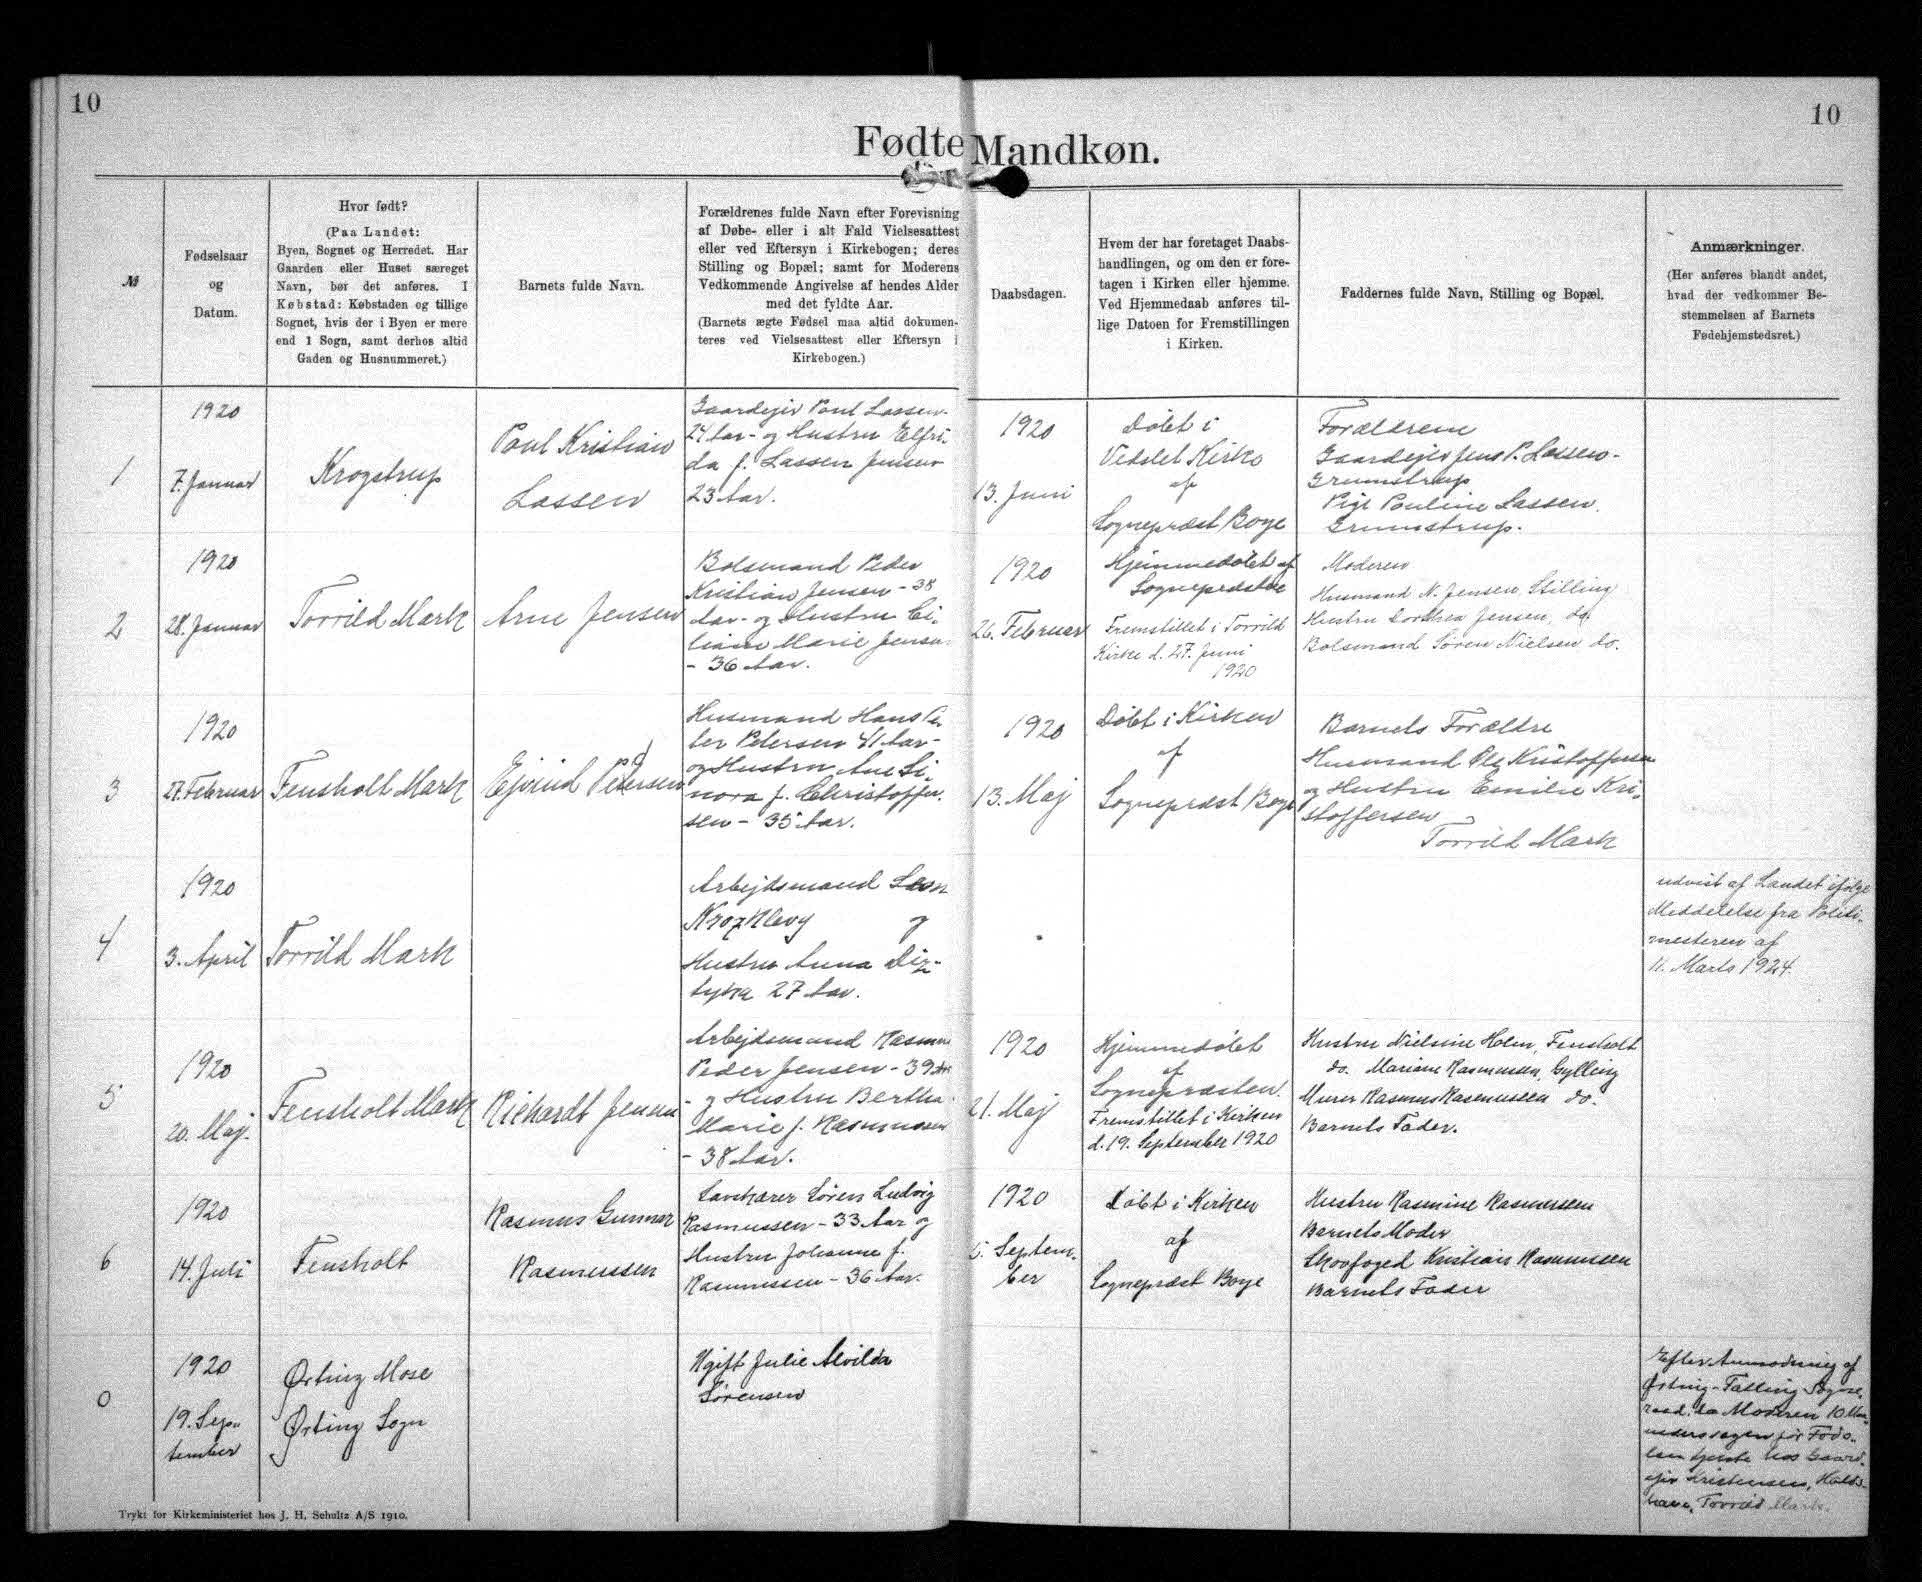 10
10
Fødte Mandkøn.
№
Fødselsaar
og
Datum.
Hvor født?
(Paa Landet:
Byen, Sognet og Herredet. Har
Gaarden eller Huset særeget
Navn, bør det anføres. I
Købstad: Købstaden og tillige
Sognet, hvis der i Byen er mere
end 1 Sogn, samt derhos altid
Gaden og Husnummeret.)
Barnets fulde Navn.
Forældrenes fulde Navn efter Forevisning
af Døbe- eller i alt Fald Vielsesattest
eller ved Eftersyn i Kirkebogen; deres
Stilling og Bopæl; samt for Moderens
Vedkommende Angivelse af hendes Alder
med det fyldte Aar.
(Barnets ægte Fødsel maa altid dokumen-
teres ved Vielsesattest eller Eftersyn i
Kirkebogen.)
Daabsdagen.
Hvem der har foretaget Daabs-
handlingen, og om den er fore-
tagen i Kirken eller hjemme.
Ved Hjemmedaab anføres til-
lige Datoen for Fremstillingen
i Kirken.
Faddernes fulde Navn, Stilling og Bopæl.
Anmærkninger.
(Her anføres blandt andet,
hvad der vedkommer Be-
stemmelsen af Barnets
Fødehjemstedsret.)
1
1920
7. Januar
Krogstrup
Poul Kristian
Lassen
Gaardejer Poul Lassen-
24 Aar- og Hustru Elfri-
da f. Lassen Jensen
23 Aar.
1920
13. Juni
Døbt i
Vedslet Kirke
af
Sognepræst Boye
Forældrene
Gaardejer Jens P. Lassen-
Grumstrup
Pige Pouline Lassen.
Grumstrup.
2
1920
28. Januar
Torrild Mark
Arne Jensen
Bolsmand Peder
Kristian Jensen - 38
Aar- og Hustru Ci-
liane Marie Jensen
- 36 Aar.
1920
26. Februar
Hjemmedøbt af
Sognepræsten
Fremstillet i Torrild
Kirke d. 27. Juni
1920
Moderen
Husmand N. Jensen, Stilling
Hustru Dorthea Jensen, do.
Bolsmand Søren Nielsen do.
3
1920
27. Februar
Fensholt Mark
Ejvind Petersen
Husmand Hans Pe-
ter Petersen 41 Aar-
og Hustru Ane Li-
nora f. Christoffer-
sen - 35 Aar.
1920
13. Maj
Døbt i Kirken
af
Sognepræst Boye
Barnets Forældre
Husmand Kristoffersen
og Hustru Emilie Kri-
stoffersen
Torrild Mark
4
1920
3. April
Torrild Mark
Arbejdsmand
og
Hustru Anna
27 Aar.
udvist af Landet ifølge
Meddelelse fra Politi-
mesteren af
11. Marts 1924.
5
1920
20. Maj.
Fensholt Mark
Richardt Jensen
Arbejdsmand Rasmus
Peder Jensen - 39 Aar
- og Hustru Bertha
Marie f. Rasmussen
- 38 Aar.
1920
21. Maj
Hjemmedøbt
af
Sognepræsten.
Fremstillet i Kirken
d. 19. September 1920
Hustru Nielsine Holm, Fensholt
do. Mariane Rasmussen, Gylling
Murer Rasmus Rasmussen do.
Barnets Fader.
6
1920
14. Juli
Fensholt
Rasmus Gunnar
Rasmussen
Savskærer Søren Ludvig
Rasmussen - 33 Aar og
Hustru Johanne f.
Rasmussen - 36 Aar.
1920
5. Septem-
ber
Døbt i Kirken
af
Sognepræst Boye
Hustru Rasmine Rasmussen
Barnets Moder
Skovfoged Kristian Rasmussen
Barnets Fader
0
1920
19. Sep-
tember
Ørting Mose
Ørting Sogn
Ugift Julie Alvilda
Sørensen
Efter Anmodning af
Ørting-Falling Sogne-
raad, da Moderen 10 Maa-
nedersdagen før Føds-
len tjente hos Gaard-
ejer Kristensen,
Torrild Mark.
Trykt for Kirkeministeriet hos J. H. Schultz A/S 1910.